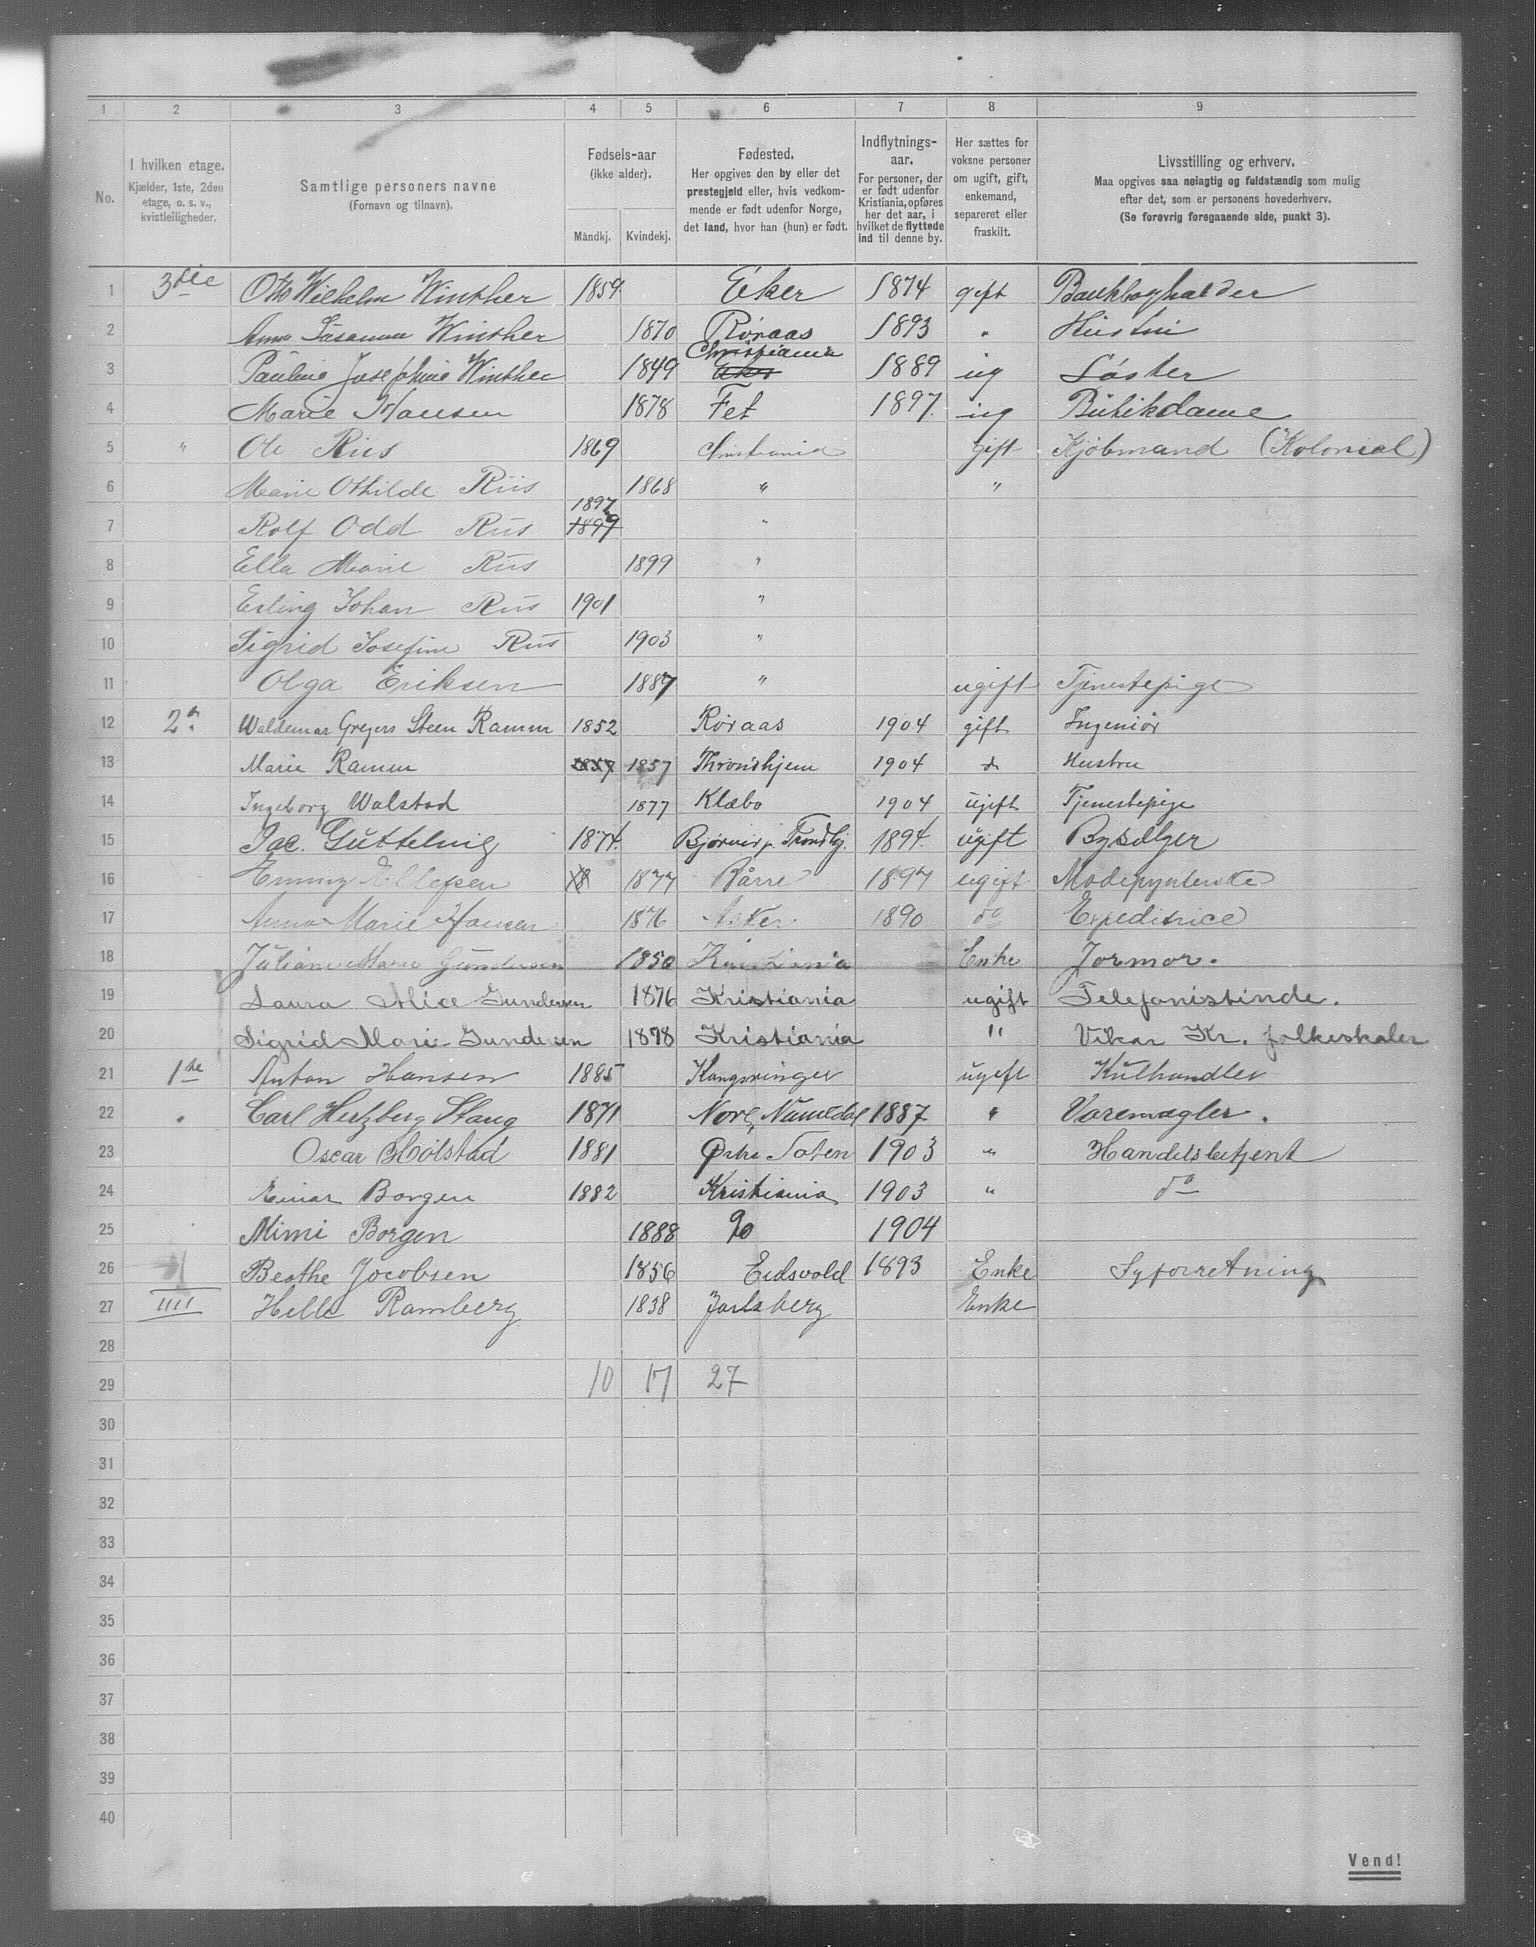 1 2 3 4 5 6 7 8 9
No.
I hvilken etage.
Kjælder, 1ste, 2den
etage, o. s. v.,
kvistleiligheder.
Samtlige personers navne
(Fornavn og tilnavn).
Fødsels-aar
(ikke alder).
Mandkj. Kvindekj.
Fødested.
Her opgives den by eller det
prestegjeld eller, hvis vedkom-
mende er født udenfor Norge,
det land, hvor han (hun) er født.
Indflytnings-
aar.
For personer, der
er født udenfor
Kristiania, opføres
her det aar, i
hvilket de flyttede
ind til denne by.
Her sættes for
voksne personer
om ugift, gift,
enkemand,
separeret eller
fraskilt.
Livsstilling og erhverv.
Maa opgives saa nøiagtig og fuldstændig som mulig
efter det, som er personens hovederhverv.
(Se forøvrig foregaaende side, punkt 3).
1 3die Otto Wilhelm Winther 1859 Eker 1874 gift Bankbogholder
2 Anna Susanna Winther 1870 Røraas 1893 " Hustru
3 Pauline Josephine Winther 1849 Christiania Eker 1889 ug Søster
4 Marie Hansen 1878 Fet 1897 ug Butikdame
5 " Ole Riis 1869 Christiania gift Kjøbmand (Kolonial)
6 Marie Othilde Riis 1868 " "
7 Rolf Odd Riis 1897 1899 "
8 Ella Marie Riis 1899 "
9 Erling Johan Riis 1901 "
10 Sigrid Josefine Riis 1903 "
11 Olga Eriksen 1887 " ugift Tjenestepige
12 2den Waldemar Gregers Steen Ramm 1852 Røraas 1904 gift Ingeniør
13 Marie Ramm 1857 1857 Throndhjem 1904 do Hustru
14 Ingeborg Walstad 1877 Klæbo 1904 ugift Tjenestepige
15 Jac. Guttelvig 1874. Bjørnør p. Trondhj. 1894. ugift Bysælger
16 Emmy Ellefsen 18 1877 Bårre 1897 ugift Modepynterske
17 Anna Marie Hansen 1876 Asker. 1890 do Expeditrice
18 Juliane Marie Gundersen 1850 Kristiania Enke Jormor.
19 Laura Alice Gundersen 1876 Kristiania ugift Telefonistinde.
20 Sigrid Marie Gundersen 1878 Kristiania " Vikar Kr. folkeskoler
21 1ste Anton Hansen 1885 Kongsvinger ugift Kulhandler
22 " Carl Hertzberg Stang 1871 Nore, Numedal 1887 " Varemægler.
23 Oscar Holstad 1881 Østre Toten 1903 " Handelsbetjent
24 Einar Borgen 1882 Kristiania 1903 " do
25 Mimi Borgen 1888 do 1904
26 Beathe Jacobsen 1856 Eidsvold 1893 Enke Syforretning
27 IIII Helle Ramberg 1838 Jarlsberg Enke
28
29 10 17 27
30
31
32
33
34
35
36
37
38
39
40
Vend!